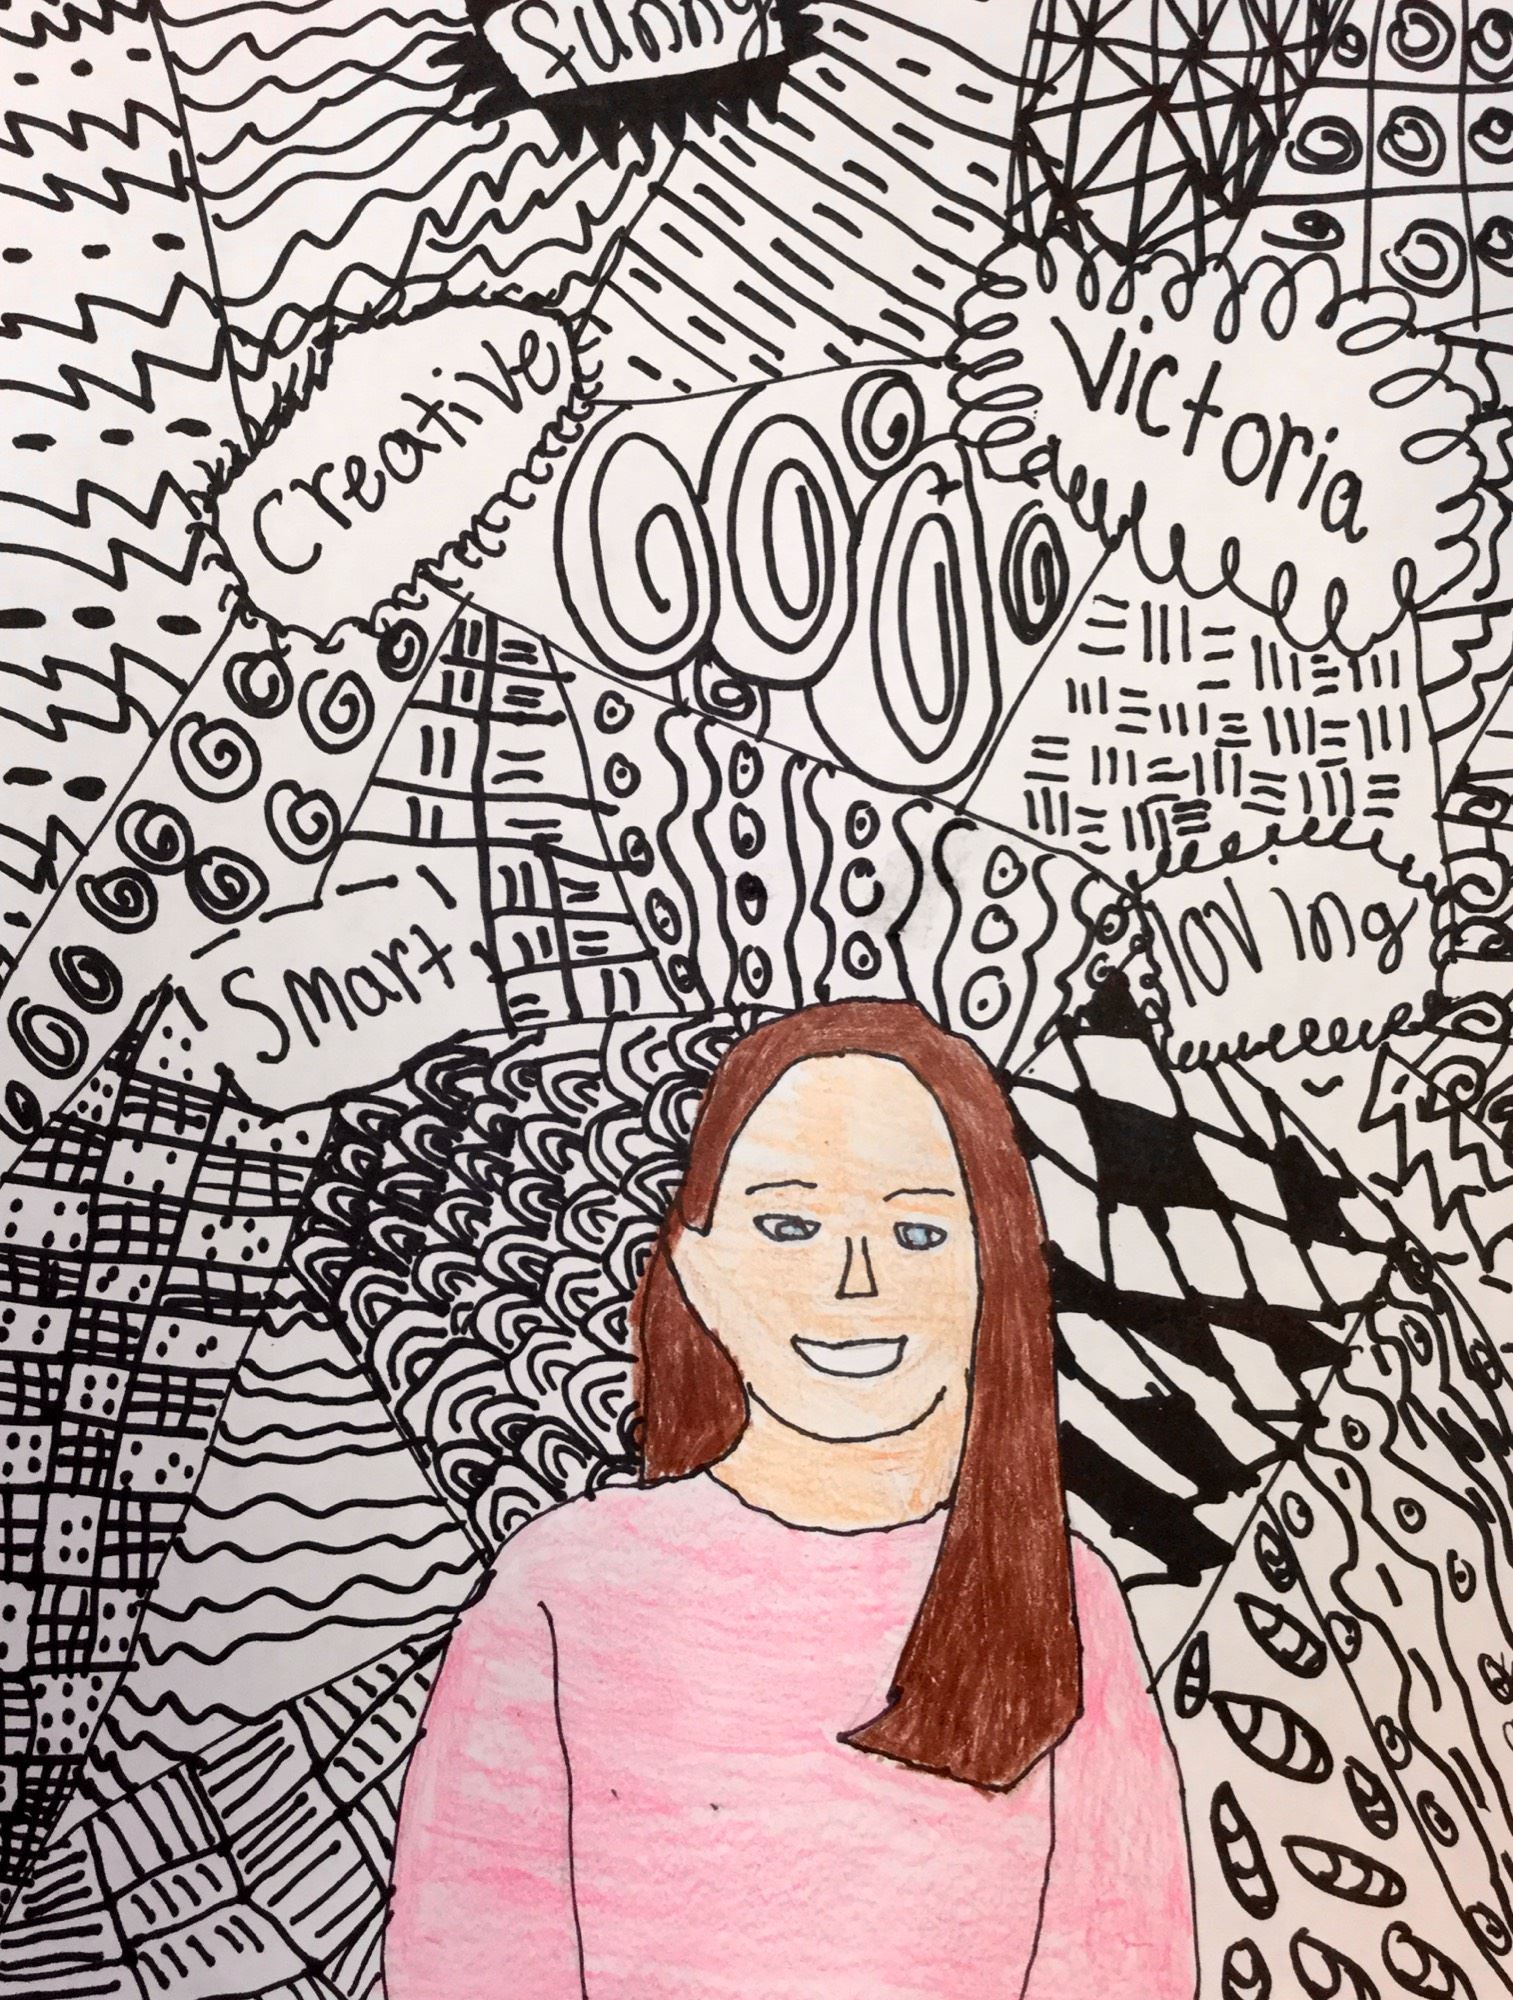 funny
Creative
Victoria
Smart
loving